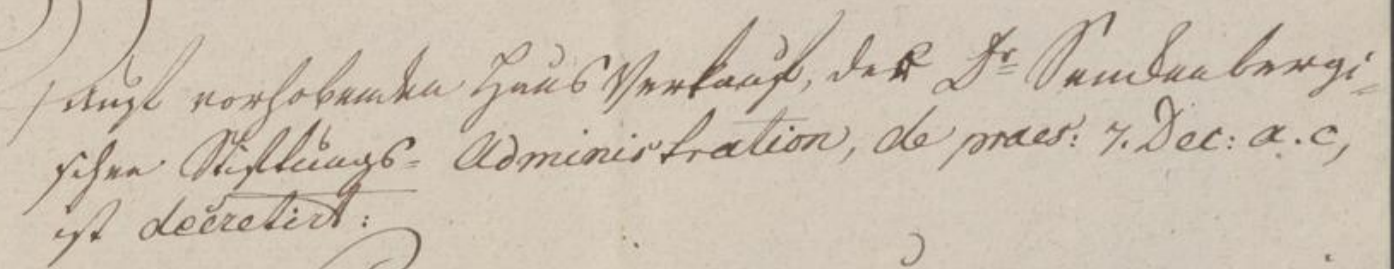 sampt vorhabenden Haus Verkauf, der Dr Senckenbergi-
schen Stiftungs- Administration, de praes: 7. Dec: a. c,
ist decretirt: